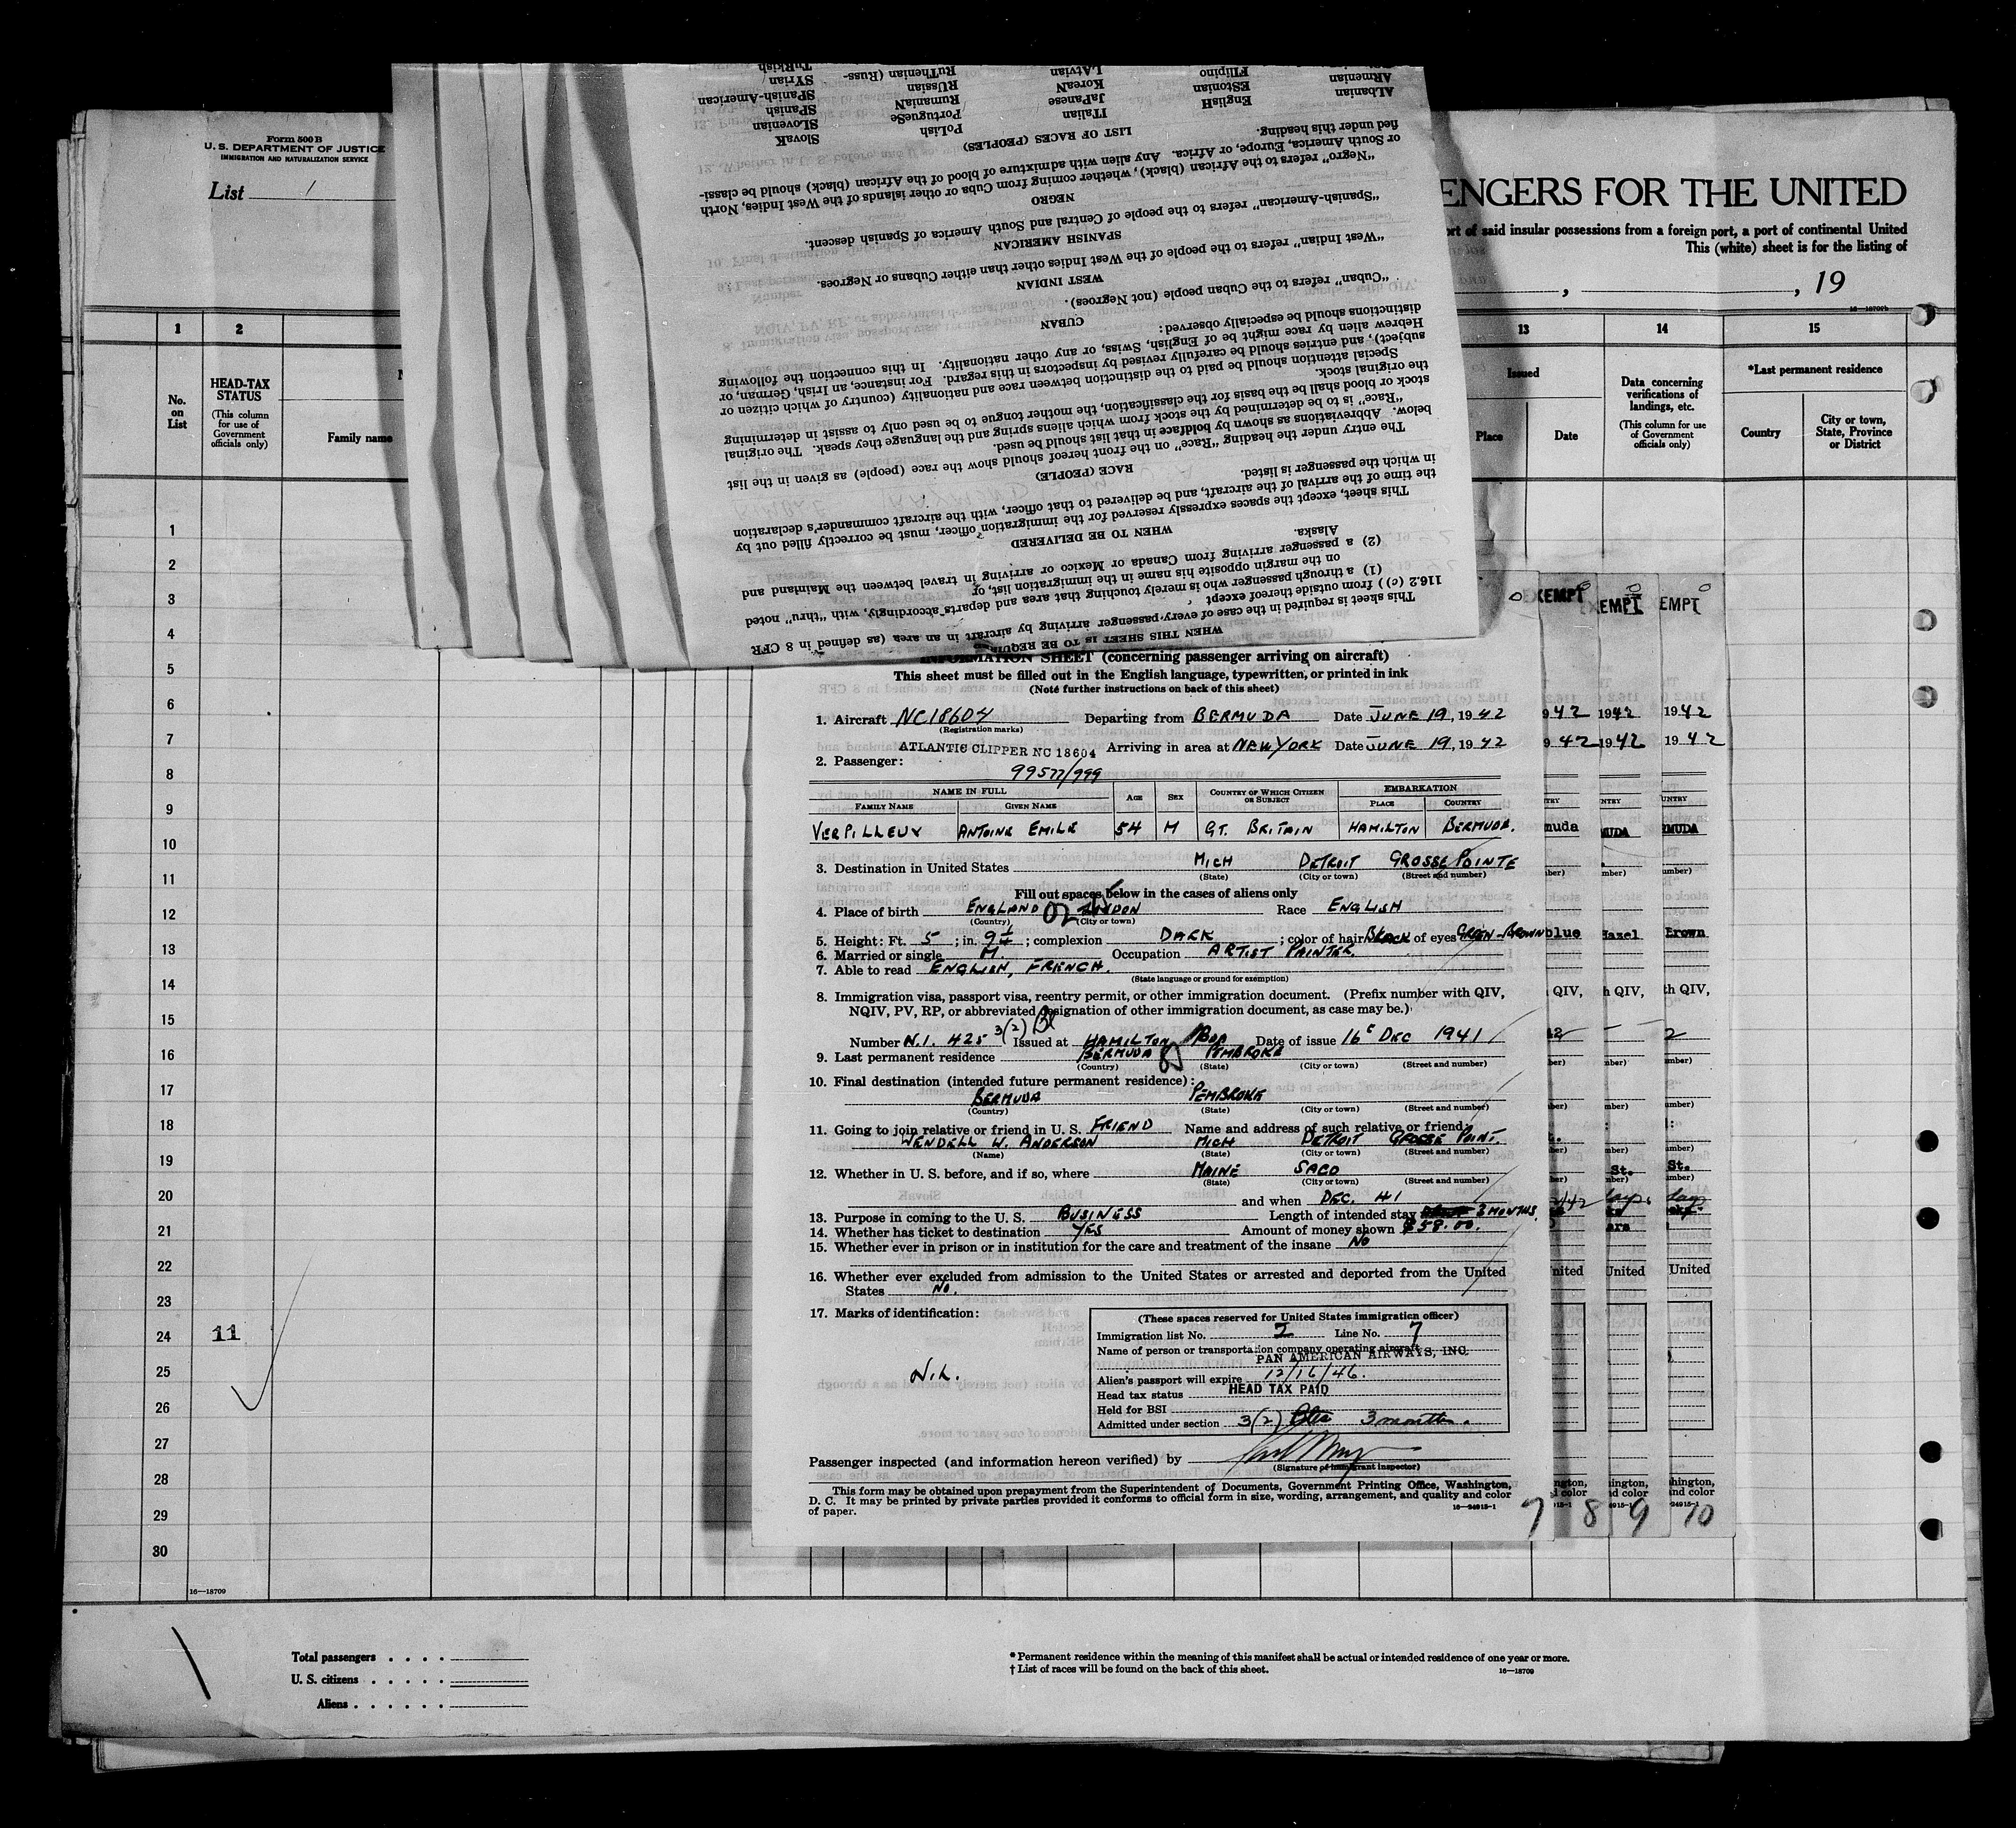 Form 500 B
U. S. DEPARTMENT OF JUSTICE
IMMIGRATION AND NATURALIZATION SERVICE
List 1
ENGERS FOR THE UNITED
ort of said insular possessions from a foreign port, a port of continental United
This (white) sheet is for the listing of
, , 19
16—18709b
1 2 13 14 15
No. on List
HEAD-TAX STATUS
(This column for use of Government officials only)
Family name
Issued
Place Date
Data concerning verifications of landings, etc.
(This column for use of Government officials only)
*Last permanent residence
Country
City or town, State, Province or District
1
2
3
4
5
6
7
8
9
10
11
12
13
14
15
16
17
18
19
20
21
22
23
24 11
25
26
27
28
29
30
16—18709
WHEN THIS SHEET IS TO BE REQUIRED
This sheet is required in the case of every passenger arriving by aircraft in an area (as defined in 8 CFR
116.2 (c) ) from outside thereof except
(1) a through passenger who is merely touching that area and departs accordingly, with "thru" noted
on the margin opposite his name in the immigration list, or
(2) a passenger arriving from Canada or Mexico or arriving in travel between the Mainland and
Alaska.
WHEN TO BE DELIVERED
This sheet, except the spaces expressly reserved for the immigration officer, must be correctly filled out by
the time of the arrival of the aircraft, and be delivered to that officer, with the aircraft commander's declaration
in which the passenger is listed.
RACE (PEOPLE)
The entry under the heading "Race" on the front hereof should show the race (people) as given in the list
below. Abbreviations as shown by boldface in that list should be used.
"Race" is to be determined by the stock from which aliens spring and the language they speak. The original
stock or blood shall be the basis for the classification, the mother tongue to be used only to assist in determining
the original stock.
Special attention should be paid to the distinction between race and nationality (country of which citizen or
subject), and entries should be carefully revised by inspectors in this regard. For instance, an Irish, German, or
Hebrew alien by race might be of English, Swiss, or any other nationality. In this connection the following
distinctions should be especially observed:
CUBAN
"Cuban" refers to the Cuban people (not Negroes).
WEST INDIAN
"West Indian" refers to the people of the West Indies other than either Cubans or Negroes.
SPANISH AMERICAN
"Spanish-American" refers to the people of Central and South America of Spanish descent.
NEGRO
"Negro" refers to the African (black), whether coming from Cuba or other islands of the West Indies, North
or South America, Europe, or Africa. Any alien with admixture of blood of the African (black) should be classi-
fied under this heading.
LIST OF RACES (PEOPLES)
ALbanian EnglisH ITalian PoLish SlovaK
ARmenian EStonian JaPanese PortugueSe SLovenian
FIlipino KoreaN RumaniaN SPanish
LAtvian RUssian SPanisH-American
RuThenian (Russ- SYrian
TuRkish
INFORMATION SHEET (concerning passenger arriving on aircraft)
This sheet must be filled out in the English language, typewritten, or printed in ink
(Note further instructions on back of this sheet)
1. Aircraft NC18604 Departing from BERMUDA Date JUNE 19, 1942
(Registration marks)
ATLANTIC CLIPPER NC 18604 Arriving in area at NEW YORK Date JUNE 19, 1942
2. Passenger:
99577/999
NAME IN FULL AGE SEX COUNTRY OF WHICH CITIZEN OR SUBJECT EMBARKATION
FAMILY NAME GIVEN NAME PLACE COUNTRY
VERPILLEUX ANTOINE EMILE 54 M GT. BRITAIN HAMILTON BERMUDA.
3. Destination in United States MICH DETROIT GROSSE POINTE
(State) (City or town) (Street and number)
Fill out spaces below in the cases of aliens only
4. Place of birth ENGLAND LONDON Race ENGLISH
(Country) (City or town)
5. Height: Ft. 5; in. 9¼; complexion DARK; color of hair BLACK of eyes GREEN-BROWN
6. Married or single M. Occupation ARTIST PAINTER.
7. Able to read ENGLISH, FRENCH.
(State language or ground for exemption)
8. Immigration visa, passport visa, reentry permit, or other immigration document. (Prefix number with QIV,
NQIV, PV, RP, or abbreviated designation of other immigration document, as case may be.)
Number N.I. 425 3(2) Issued at HAMILTON BDA Date of issue 16 DEC 1941
9. Last permanent residence BERMUDA PEMBROKE
(Country) (State) (City or town) (Street and number)
10. Final destination (intended future permanent residence):
BERMUDA PEMBROKE
(Country) (State) (City or town) (Street and number)
11. Going to join relative or friend in U. S. FRIEND Name and address of such relative or friend:
WENDELL W. ANDERSON MICH DETROIT GROSSE POINT.
(Name) (State) (City or town) (Street and number)
12. Whether in U. S. before, and if so, where MAINE SACO
(State) (City or town) (Street and number)
and when DEC. 41
13. Purpose in coming to the U. S. BUSINESS Length of intended stay 3 MONTHS.
14. Whether has ticket to destination YES Amount of money shown $58.00.
15. Whether ever in prison or in institution for the care and treatment of the insane NO
16. Whether ever excluded from admission to the United States or arrested and deported from the United
States NO.
17. Marks of identification:
N.L.
(These spaces reserved for United States immigration officer)
Immigration list No. 2 Line No. 7
Name of person or transportation company operating aircraft
PAN AMERICAN AIRWAYS, INC.
Alien's passport will expire 12/16/46.
Head tax status HEAD TAX PAID
Held for BSI
Admitted under section 3(2) 3 months.
Passenger inspected (and information hereon verified) by
(Signature of immigrant inspector)
This form may be obtained upon prepayment from the Superintendent of Documents, Government Printing Office, Washington,
D. C. It may be printed by private parties provided it conforms to official form in size, wording, arrangement, and quality and color
of paper.
16—24915-1
7 8 9 10
EXEMPT EXEMPT EMPT
42 1942 1942
42 1942 1942
muda MUDA RMUDA
blue Hazel Brown
QIV, h QIV, th QIV,
St. St.
United United United
Total passengers . . . .
U. S. citizens . . . . .
Aliens . . . . . .
* Permanent residence within the meaning of this manifest shall be actual or intended residence of one year or more.
† List of races will be found on the back of this sheet.
16—18709